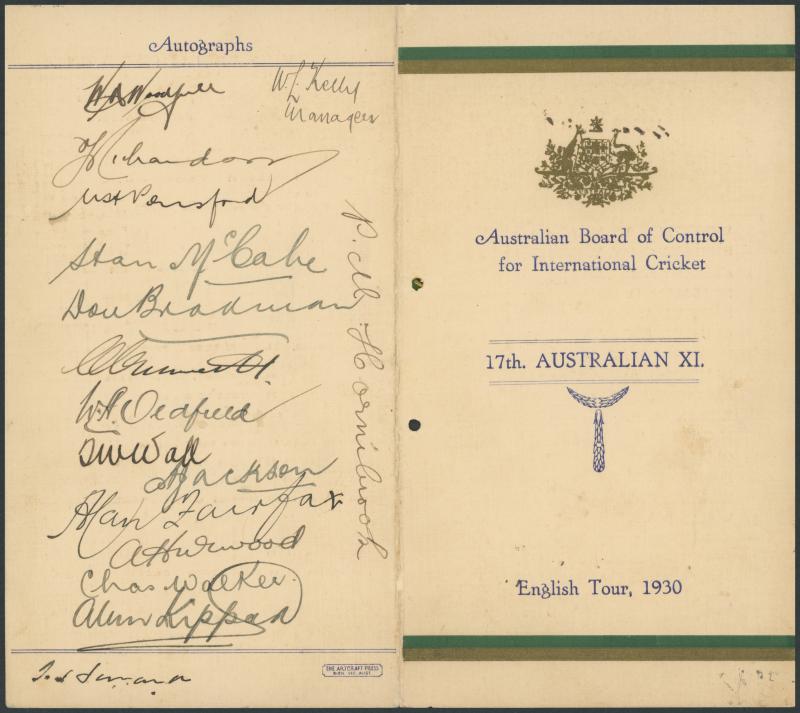 Autographs
W M Woodfull
W L Kelly
Manager
V Richardson
W H Ponsford
Stan McCabe
Don Bradman
P. M. Hornibrook
W A Oldfield
T W Wall
A Jackson
Alan Fairfax
A Hurwood
Chas Walker.
Alan Kippax
THE ARTCRAFT PRESS
Australian Board of Control
for International Cricket
17th. AUSTRALIAN XI.
English Tour, 1930